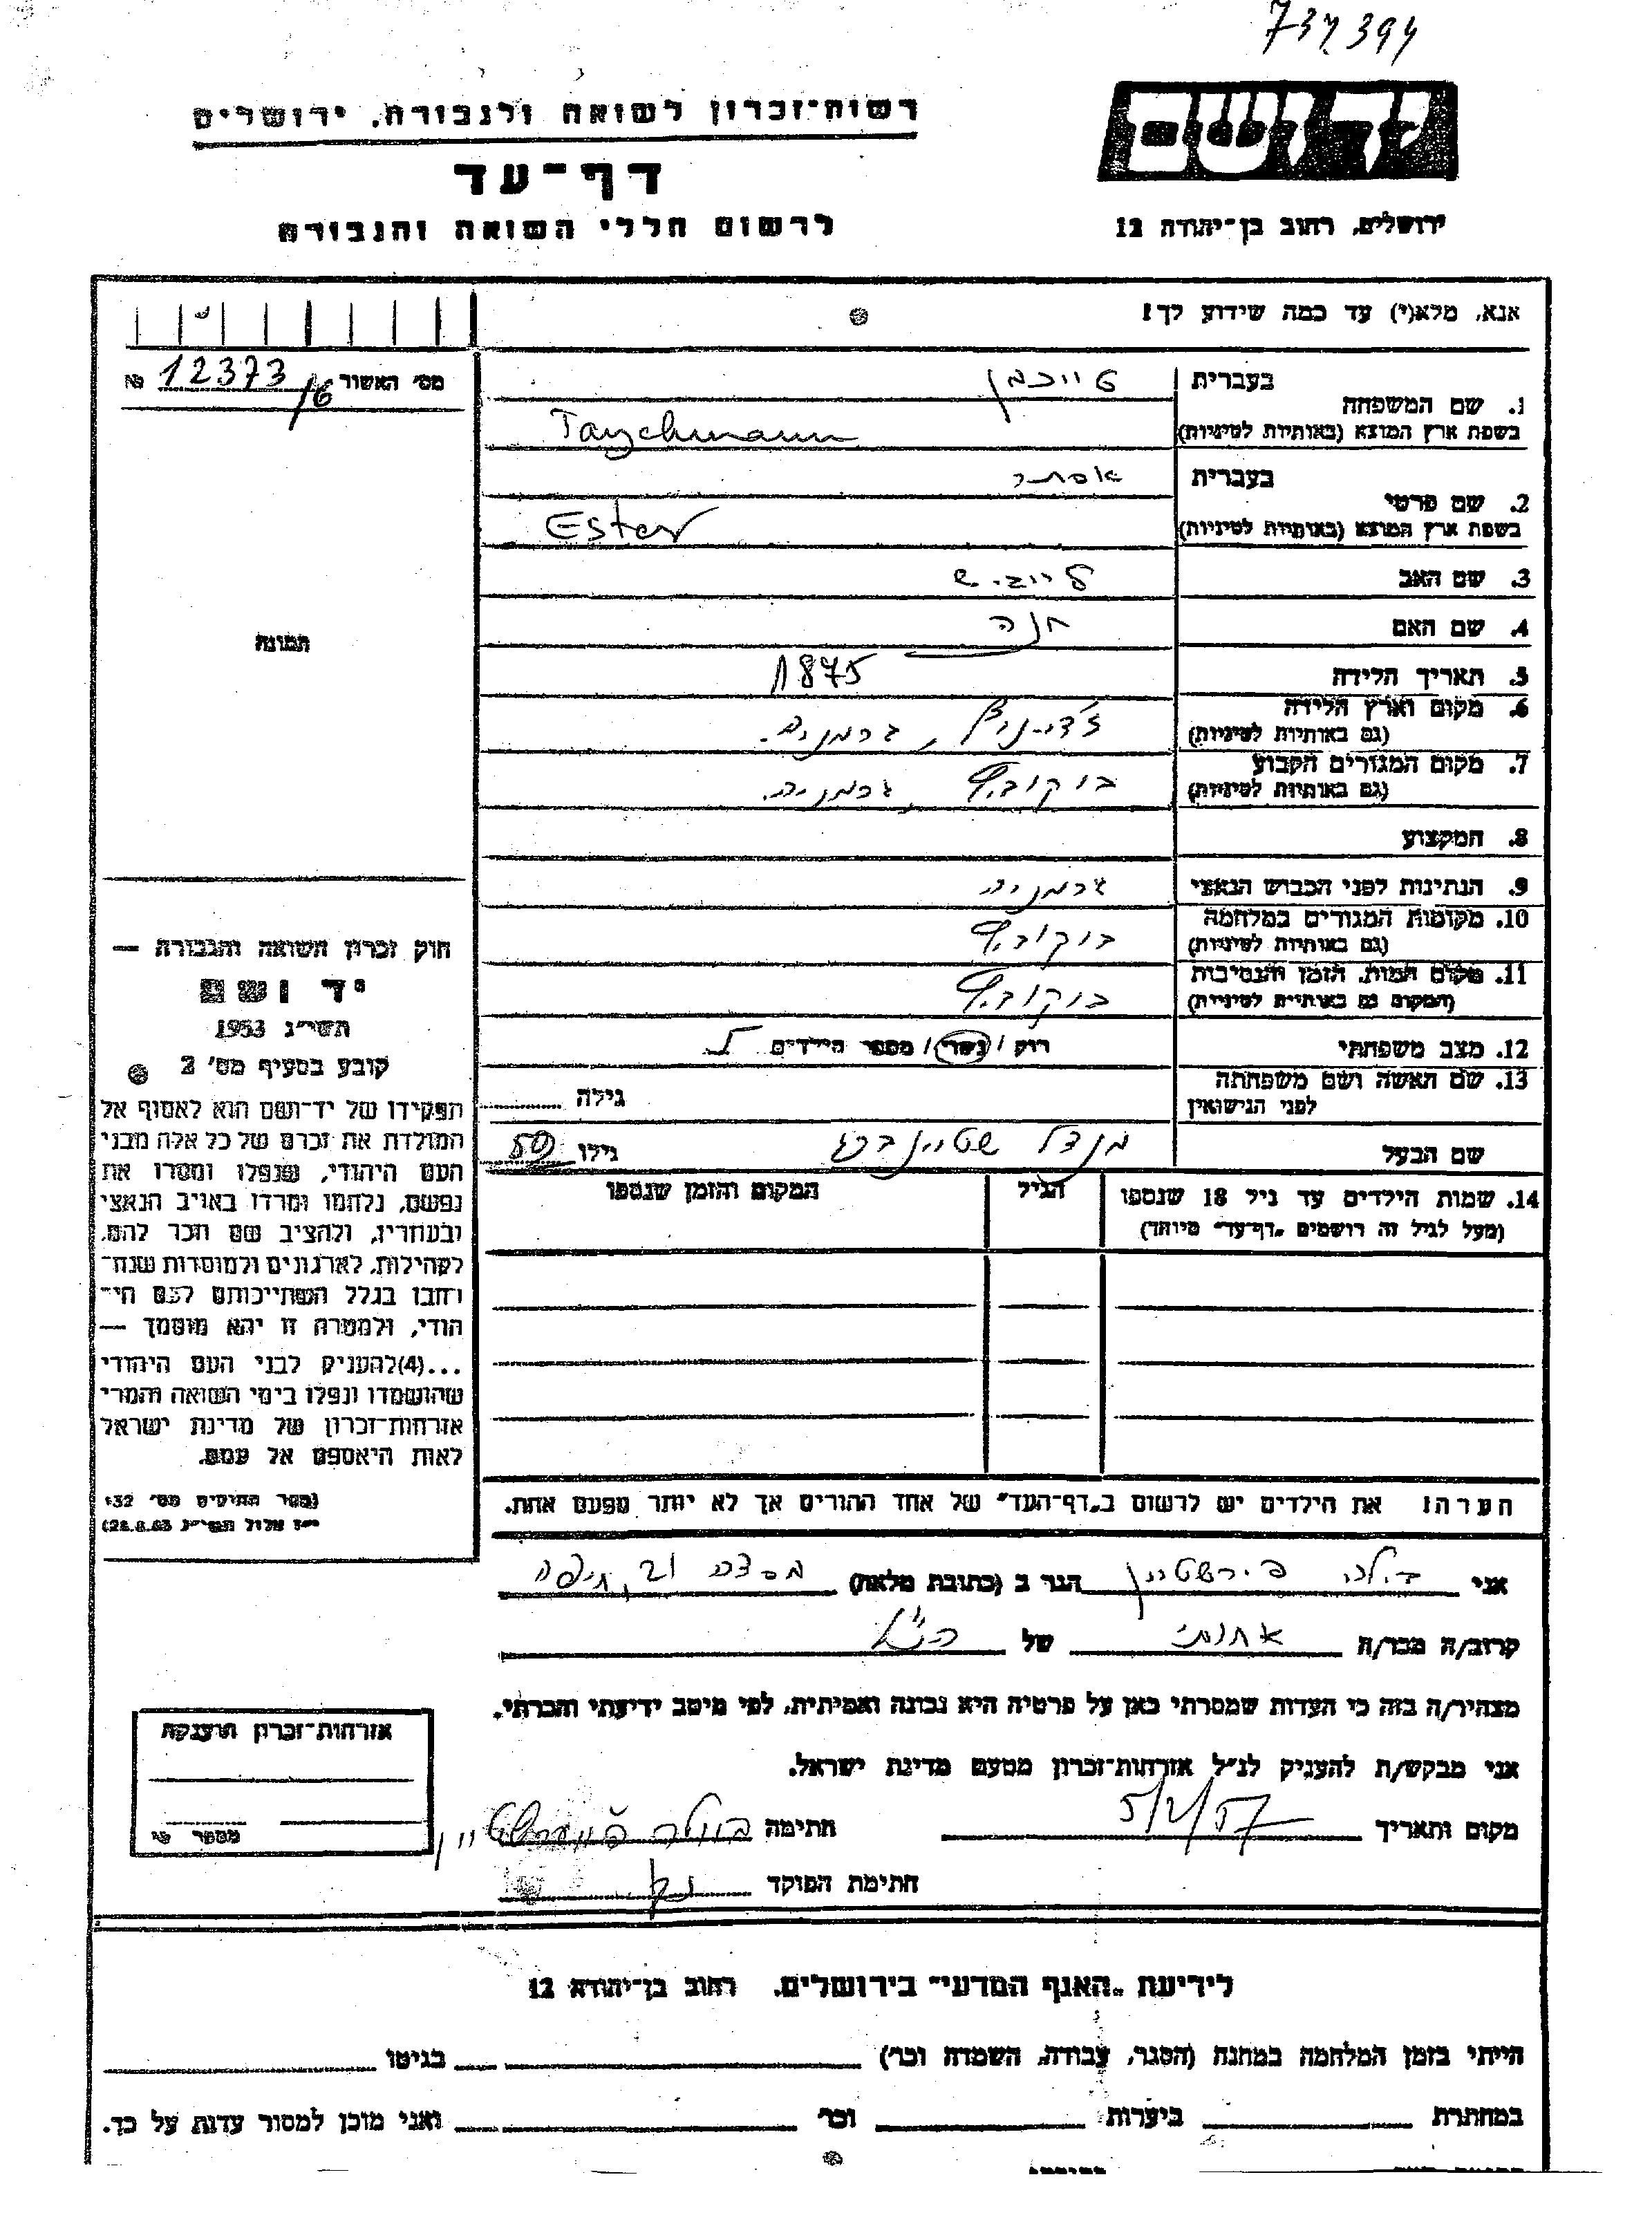 737394
יד ושם
רשות-זכרון לשואה ולגבורה, ירושלים
דף-עד
לרשום חללי השואה והגבורה
ירושלים, רחוב בן-יהודה 12
אנא, מלא(י) עד כמה שידוע לך!
מס' האשור 12373/6 №
בעברית טייכמן
1. שם המשפחה
בשפת ארץ המוצא (באותיות לטיניות) Taychmann
בעברית אסתר
2. שם פרטי
בשפת ארץ המוצא (באותיות לטיניות) Ester
3. שם האב לייביש
4. שם האם חנה
5. תאריך הלידה 1875
6. מקום וארץ הלידה
(גם באותיות לטיניות) גרמניה.
7. מקום המגורים הקבוע
(גם באותיות לטיניות) גרמניה.
8. המקצוע
9. הנתינות לפני הכבוש הנאצי גרמניה
10. מקומות המגורים במלחמה
(גם באותיות לטיניות)
11. מקום המות, הזמן והנסיבות
(המקום גם באותיות לטיניות)
12. מצב משפחתי רווק / נשוי / מספר הילדים
13. שם האשה ושם משפחתה
לפני הנישואין גילה
שם הבעל מנדל שטיינברג גילו 50
14. שמות הילדים עד גיל 18 שנספו
(מעל לגיל זה רושמים "דף-עד" מיוחד)
הגיל
המקום והזמן שנספו
הערה! את הילדים יש לרשום ב"דף-העד" של אחד ההורים אך לא יותר מפעם אחת.
תמונה
חוק זכרון השואה והגבורה —
יד ושם
תשי"ג 1953
קובע בסעיף מס' 2
תפקידו של יד-ושם הוא לאסוף אל
המולדת את זכרם של כל אלה מבני
העם היהודי, שנפלו ומסרו את
נפשם, נלחמו ומרדו באויב הנאצי
ובעוזריו, ולהציב שם וזכר להם,
לקהילות, לארגונים ולמוסדות שנח-
רבו בגלל השתייכותם לעם הי-
הודי, ולמטרה זו יהא מוסמך —
...(4) להעניק לבני העם היהודי
שהושמדו ונפלו בימי השואה והמרי
אזרחות-זכרון של מדינת ישראל
לאות היאספם אל עמם.
(ספר החוקים מס' 132
י"ז אלול תשי"ג 28.8.53)
אני פיירשטיין הגר ב (כתובת מלאה) מסדה 21, חיפה
קרוב/ה מכר/ה אחותי של הנ"ל
מצהיר/ה בזה כי העדות שמסרתי כאן על פרטיה היא נכונה ואמיתית, לפי מיטב ידיעתי והכרתי.
אני מבקש/ת להעניק לנ"ל אזרחות-זכרון מטעם מדינת ישראל.
מקום ותאריך 5/2/57 חתימה
חתימת הפוקד
אזרחות-זכרון הוענקה
מספר
לידיעת "האגף המדעי" בירושלים, רחוב בן-יהודה 12
הייתי בזמן המלחמה במחנה (הסגר, עבודה, השמדה וכו') בגיטו
במחתרת ביערות וכו' ואני מוכן למסור עדות על כך.